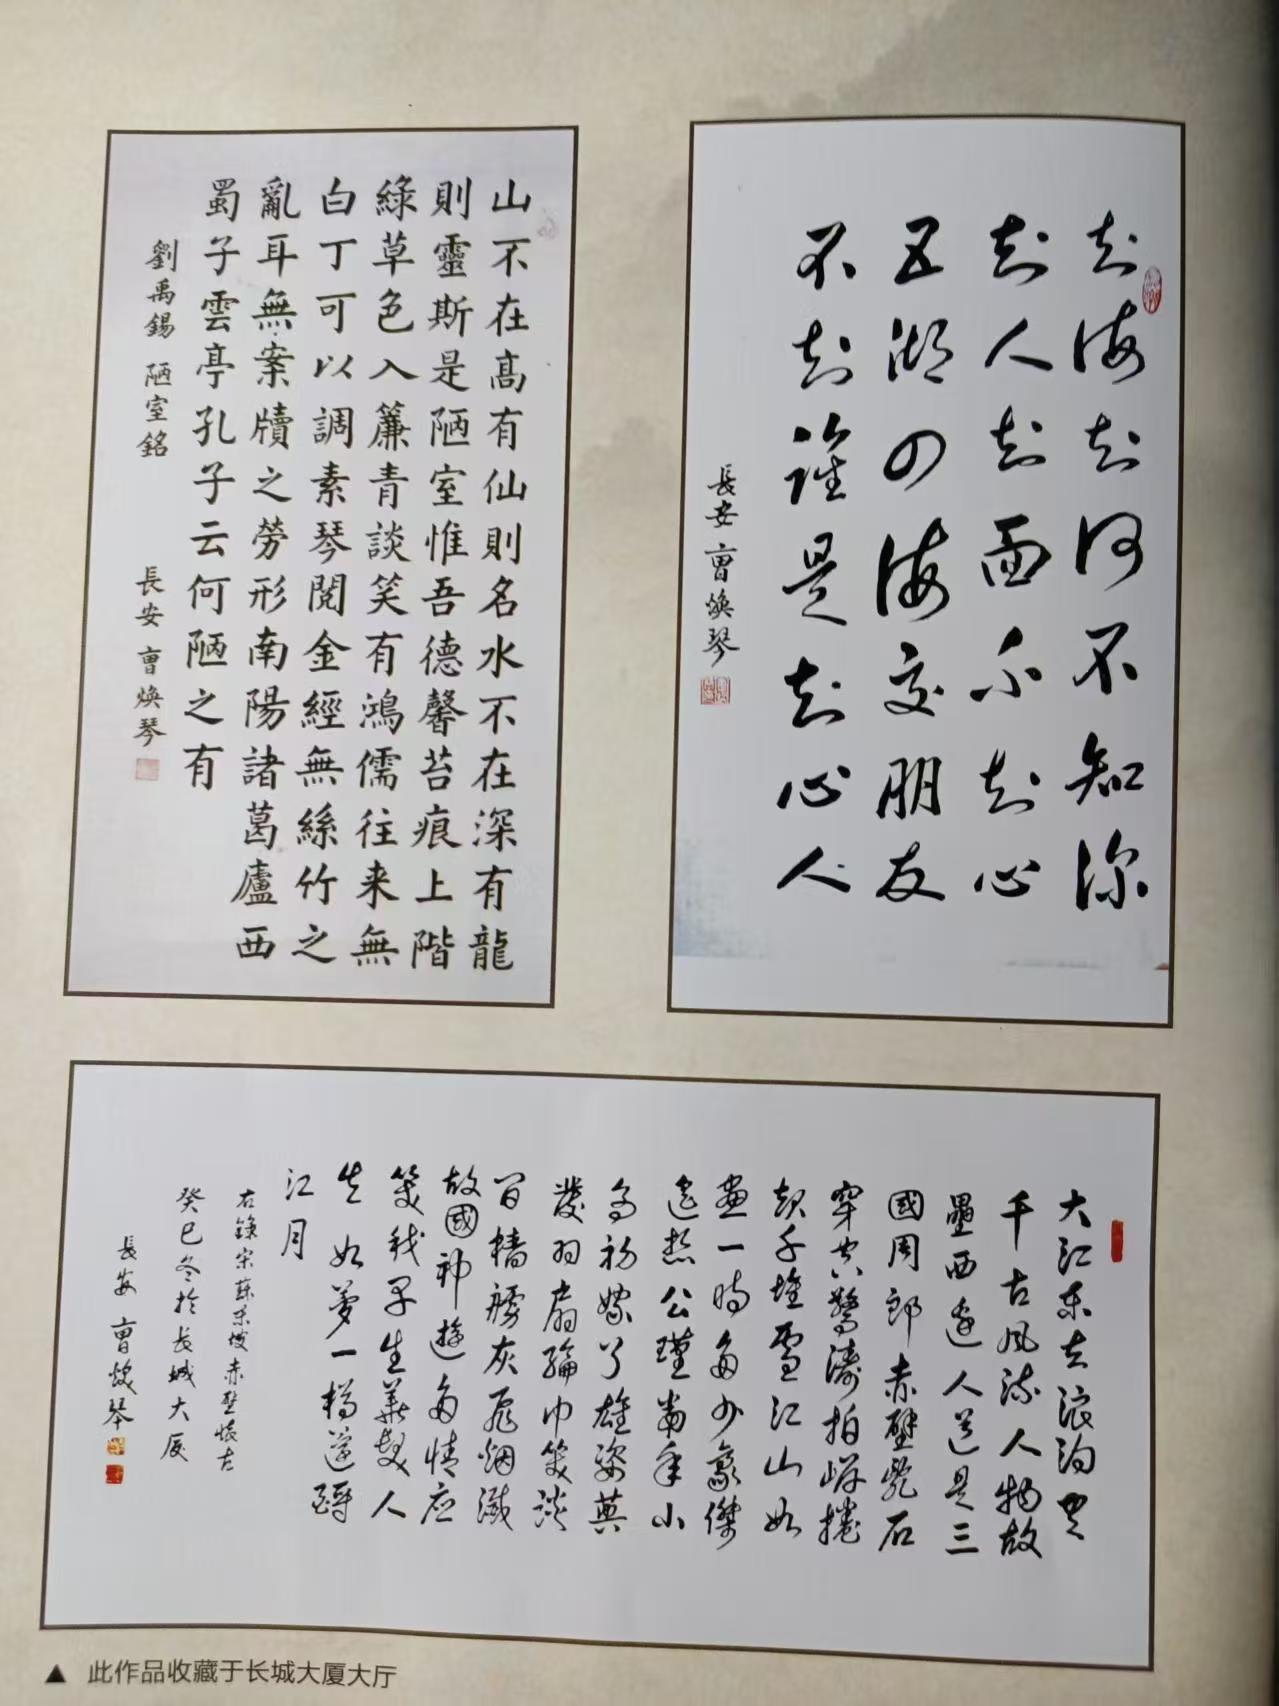 山不在高有仙則名水不在深有龍
則靈斯是陋室惟吾德馨苔痕上階
綠草色入簾青談笑有鴻儒往来無
白丁可以調素琴閱金經無絲竹之
亂耳無案牘之勞形南陽諸葛廬西
蜀子雲亭孔子云何陋之有
劉禹錫 陋室銘 長安 曹煥琴
知海知河不知深
知人知面不知心
五湖四海交朋友
不知誰是知心人
長安 曹煥琴
大江東去浪淘盡
千古風流人物故
壘西邊人道是三
國周郎赤壁亂石
穿空驚濤拍岸捲
起千堆雪江山如
畫一時多少豪傑
遙想公瑾當年小
喬初嫁了雄姿英
發羽扇綸巾笑談
間檣艣灰飛烟滅
故國神遊多情应
笑我早生華髮人
生如夢一樽還酹
江月
右錄宋蘇東坡赤壁懷古
癸巳冬於長城大厦
長安 曹煥琴
▲ 此作品收藏于长城大厦大厅